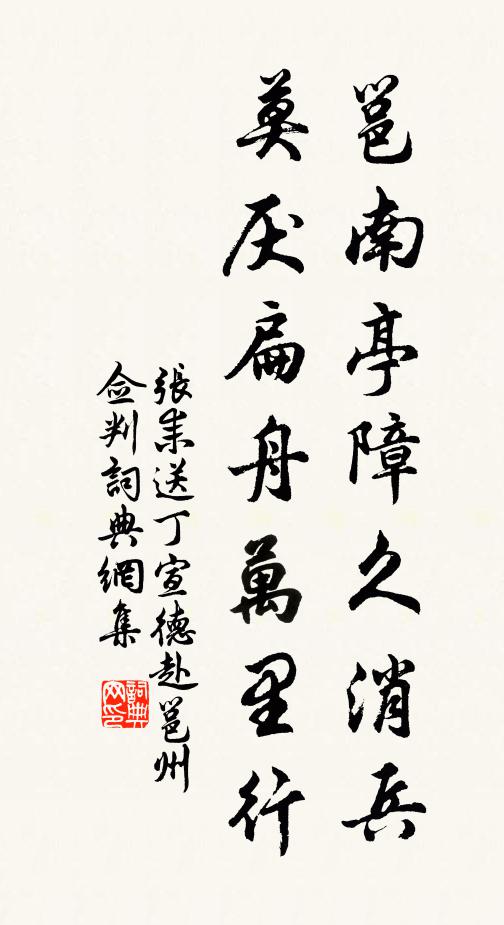 邕南亭障久消兵
莫厌扁舟萬里行
張耒送丁宣德赴邕州
僉判詞典網集
詞典网印